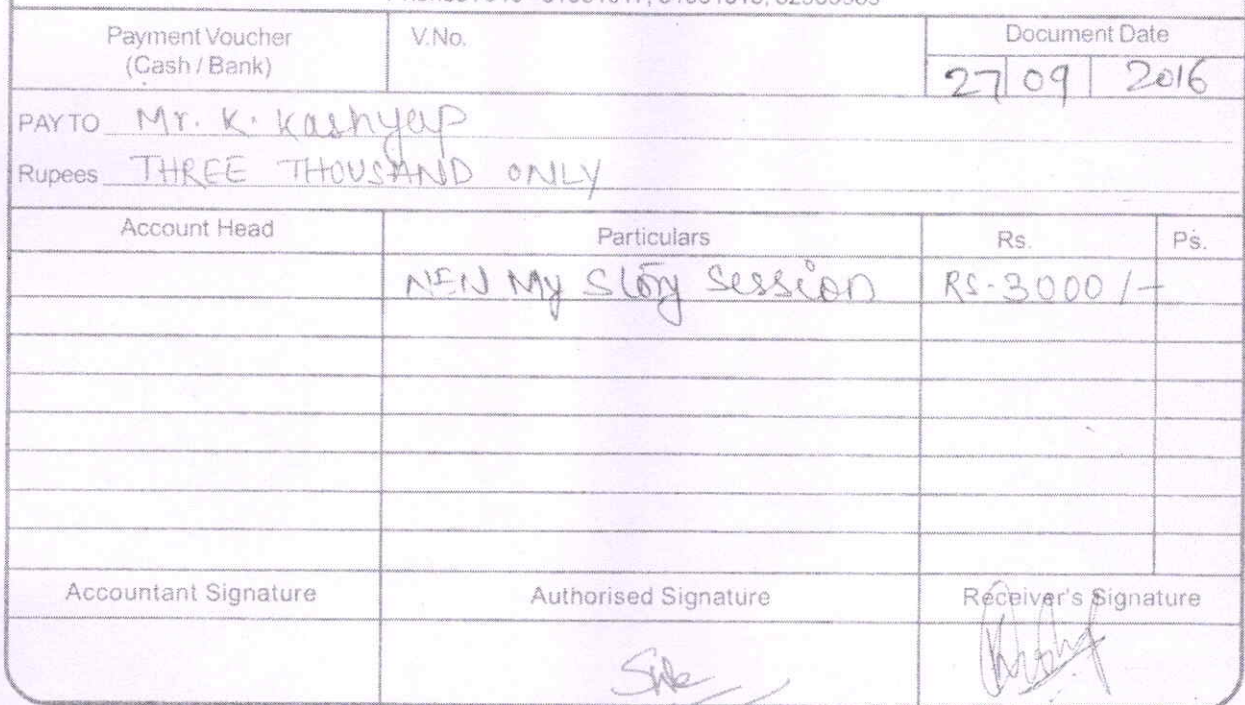 Payment Voucher V.No. Document Date
(Cash / Bank)
27 09 2016
PAY TO Mr. K. Kashyap
Rupees THREE THOUSAND ONLY
Account Head Particulars Rs. Ps.
NEN My Story Session RS. 3000 /-
Accountant Signature Authorised Signature Receiver's Signature